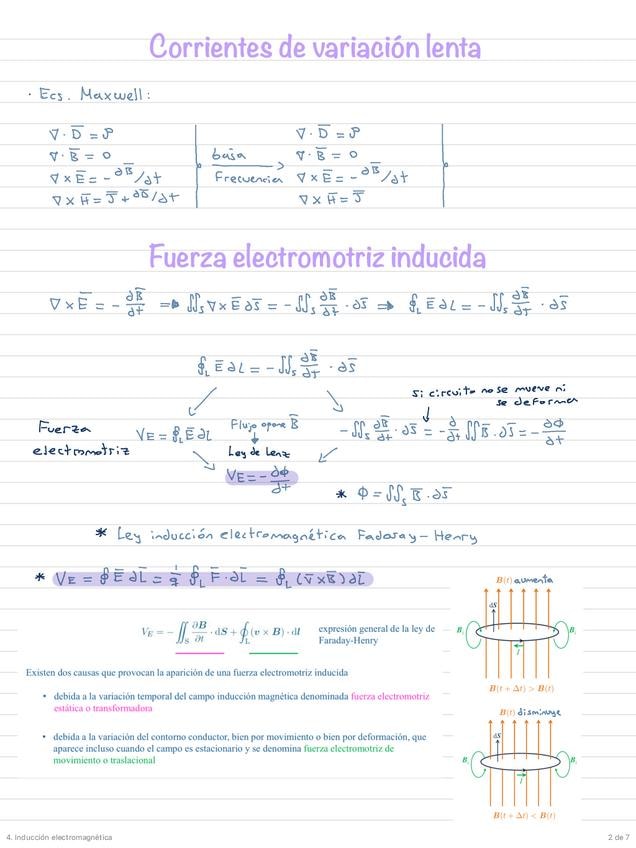 Corrientes de variación lenta
· Ecs. Maxwell:
∇ · D̅ = ρ
∇ · B̅ = 0
∇ × E̅ = - ∂B̅/∂t
∇ × H̅ = J̅ + ∂D̅/∂t
baja
Frecuencia
∇ · D̅ = ρ
∇ · B̅ = 0
∇ × E̅ = - ∂B̅/∂t
∇ × H̅ = J̅
Fuerza electromotriz inducida
∇ × E̅ = - ∂B̅/∂t ⇒ ∬s ∇ × E̅ ∂S̅ = - ∬s ∂B̅/∂t · ∂S̅ ⇒ ∮L E̅ ∂L = - ∬s ∂B̅/∂t · ∂S̅
∮L E̅ ∂L = - ∬s ∂B̅/∂t · ∂S̅
si circuito no se mueve ni
se deforma
Fuerza
electromotriz
VE = ∮L E̅ ∂L
Flujo opone B̅
Ley de Lenz
- ∬s ∂B̅/∂t · ∂S̅ = - ∂/∂t ∬ B̅ · ∂S̅ = - ∂Φ/∂t
VE = - ∂Φ/∂t
* Φ = ∬s B̅ · ∂S̅
* Ley inducción electromagnética Faday - Henry
* VE = ∮ E̅ ∂L̅ = 1/q ∮L F̅ · ∂L̅ = ∮L (v̅ × B̅) ∂L̅
VE = - ∬S ∂B/∂t · dS + ∮L (v × B) · dl
expresión general de la ley de
Faraday-Henry
Existen dos causas que provocan la aparición de una fuerza electromotriz inducida
• debida a la variación temporal del campo inducción magnética denominada fuerza electromotriz
estática o transformadora
• debida a la variación del contorno conductor, bien por movimiento o bien por deformación, que
aparece incluso cuando el campo es estacionario y se denomina fuerza electromotriz de
movimiento o traslacional
B(t) aumenta
dS
Bi
Bi
I
B(t + Δt) > B(t)
B(t) disminuye
dS
Bi
Bi
I
B(t + Δt) < B(t)
4. Inducción electromagnética
2 de 7